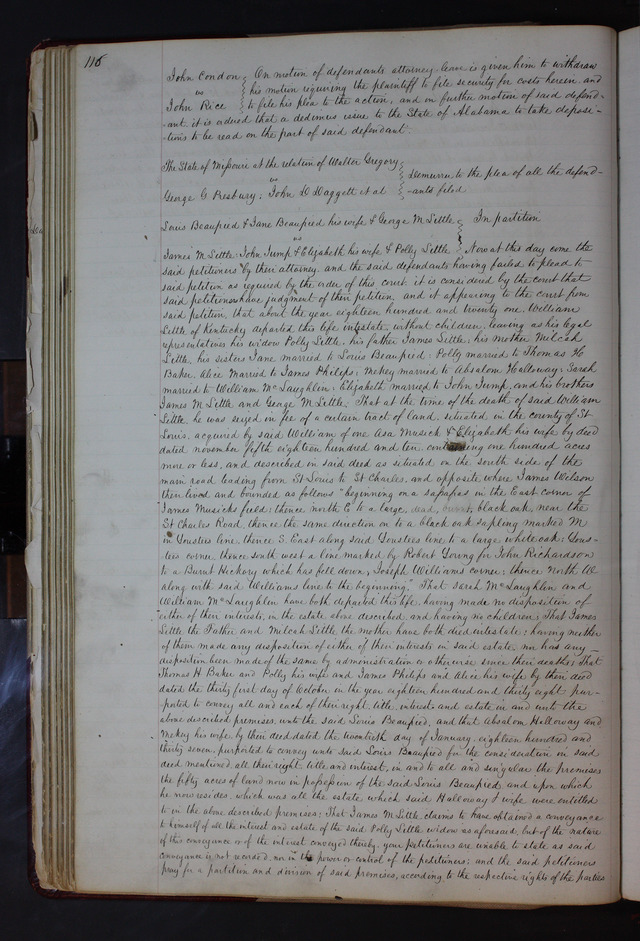 116
John Condon } On motion of defendants attorney leave is given him to withdraw
vs } his motion requiring the plaintiff to file security for costs herein and
John Rice } to file his plea to the action, and on further motion of said defend-
-ant it is ordered that a dedimus issue to the State of Alabama to take deposi-
-tions to be read on the part of said defendant.
The State of Missouri at the relation of Walter Gregory
vs } Demurrer to the plea of all the defend-
George G Presbury; John D Daggett et al } -ants filed
Louis Beaupied & Jane Beaupied his wife & George M Little } In partition
vs
James M Little; John Jump & Elizabeth his wife & Polly Little } Now at this day come the
said petitioners by their attorney and the said defendants having failed to plead to
said petition as required by the order of this court it is considered by the court that
said petitioners have judgment of their petition, and it appearing to the court from
said petition, that about the year eighteen hundred and twenty one, William
Little of Kentucky departed this life intestate, without children, leaving as his legal
representatives his widow Polly Little, his father James Little; his mother Milcah
Little, his sisters Jane married to Louis Beaupied; Polly married to Thomas H
Baker, Alice married to James Philips; Mekey married to Absalom Halloway; Sarah
married to William McLaughlen; Elizabeth married to John Jump, and his brothers
James M Little and George M Little; That at the time of the death of said William
Little, he was seized in fee of a certain tract of land, situated in the county of St
Louis, acquired by said William of one Asa Musick & Elizabeth his wife by deed
dated november fifth eighteen hundred and ten containing one hundred acres
more or less, and described in said deed as situated on the south side of the
main road leading from St Louis to St Charles, and opposite where James Wilson
then lived and bounded as follows "beginning on a sassafras in the East corner of
James Musicks field: thence north E to a large, dead, burnt, black oak, near the
St Charles Road, thence the same direction on to a black oak sapling marked M
in Yousters line, thence S. East along said Yousters line to a large white oak: Yous-
ters corner, thence south west a line marked by Robert Young for John Richardson
to a Burnt Hickory which has fell down; Joseph Williams corner; thence North W
along with said Williams line to the beginning." That Sarah McLaughlen and
William McLaughlen have both departed this life, having made no disposition of
either of their interests, in the estate above described, and having no children; That James
Little the Father and Milcah Little the mother have both died intestate; having neither
of them made any disposition of either of their interests in said estate, nor has any
disposition been made of the same by administration or otherwise since their deaths; That
Thomas H Baker and Polly his wife and James Philips and Alice his wife by their deed
dated the thirty first day of October in the year eighteen hundred and thirty eight pur-
-ported to convey all and each of their right, title, interest and estate in and unto the
above described premises, unto the said Louis Beaupied, and that Absalom Holloway and
Mekey his wife by their deed dated the twentieth day of January, eighteen hundred and
thirty seven, purported to convey unto said Louis Beaupied for the consideration in said
deed mentioned, all their right title and interest, in and to all and singular the premises
the fifty acres of land now in possession of the said Louis Beaupied and upon which
he now resides, which was all the estate which said Halloway & wife were entitled
to in the above described premises; That James M Little claims to have obtained a conveyance
to himself of all the interest and estate of the said Polly Little widow as aforesaid, but of the nature
of this conveyance or of the interest conveyed thereby, your petitioners are unable to state as said
conveyance is not recorded, nor in the power or control of the petitioners; and the said petitioners
pray for a partition and division of said premises, according to the respective rights of the parties